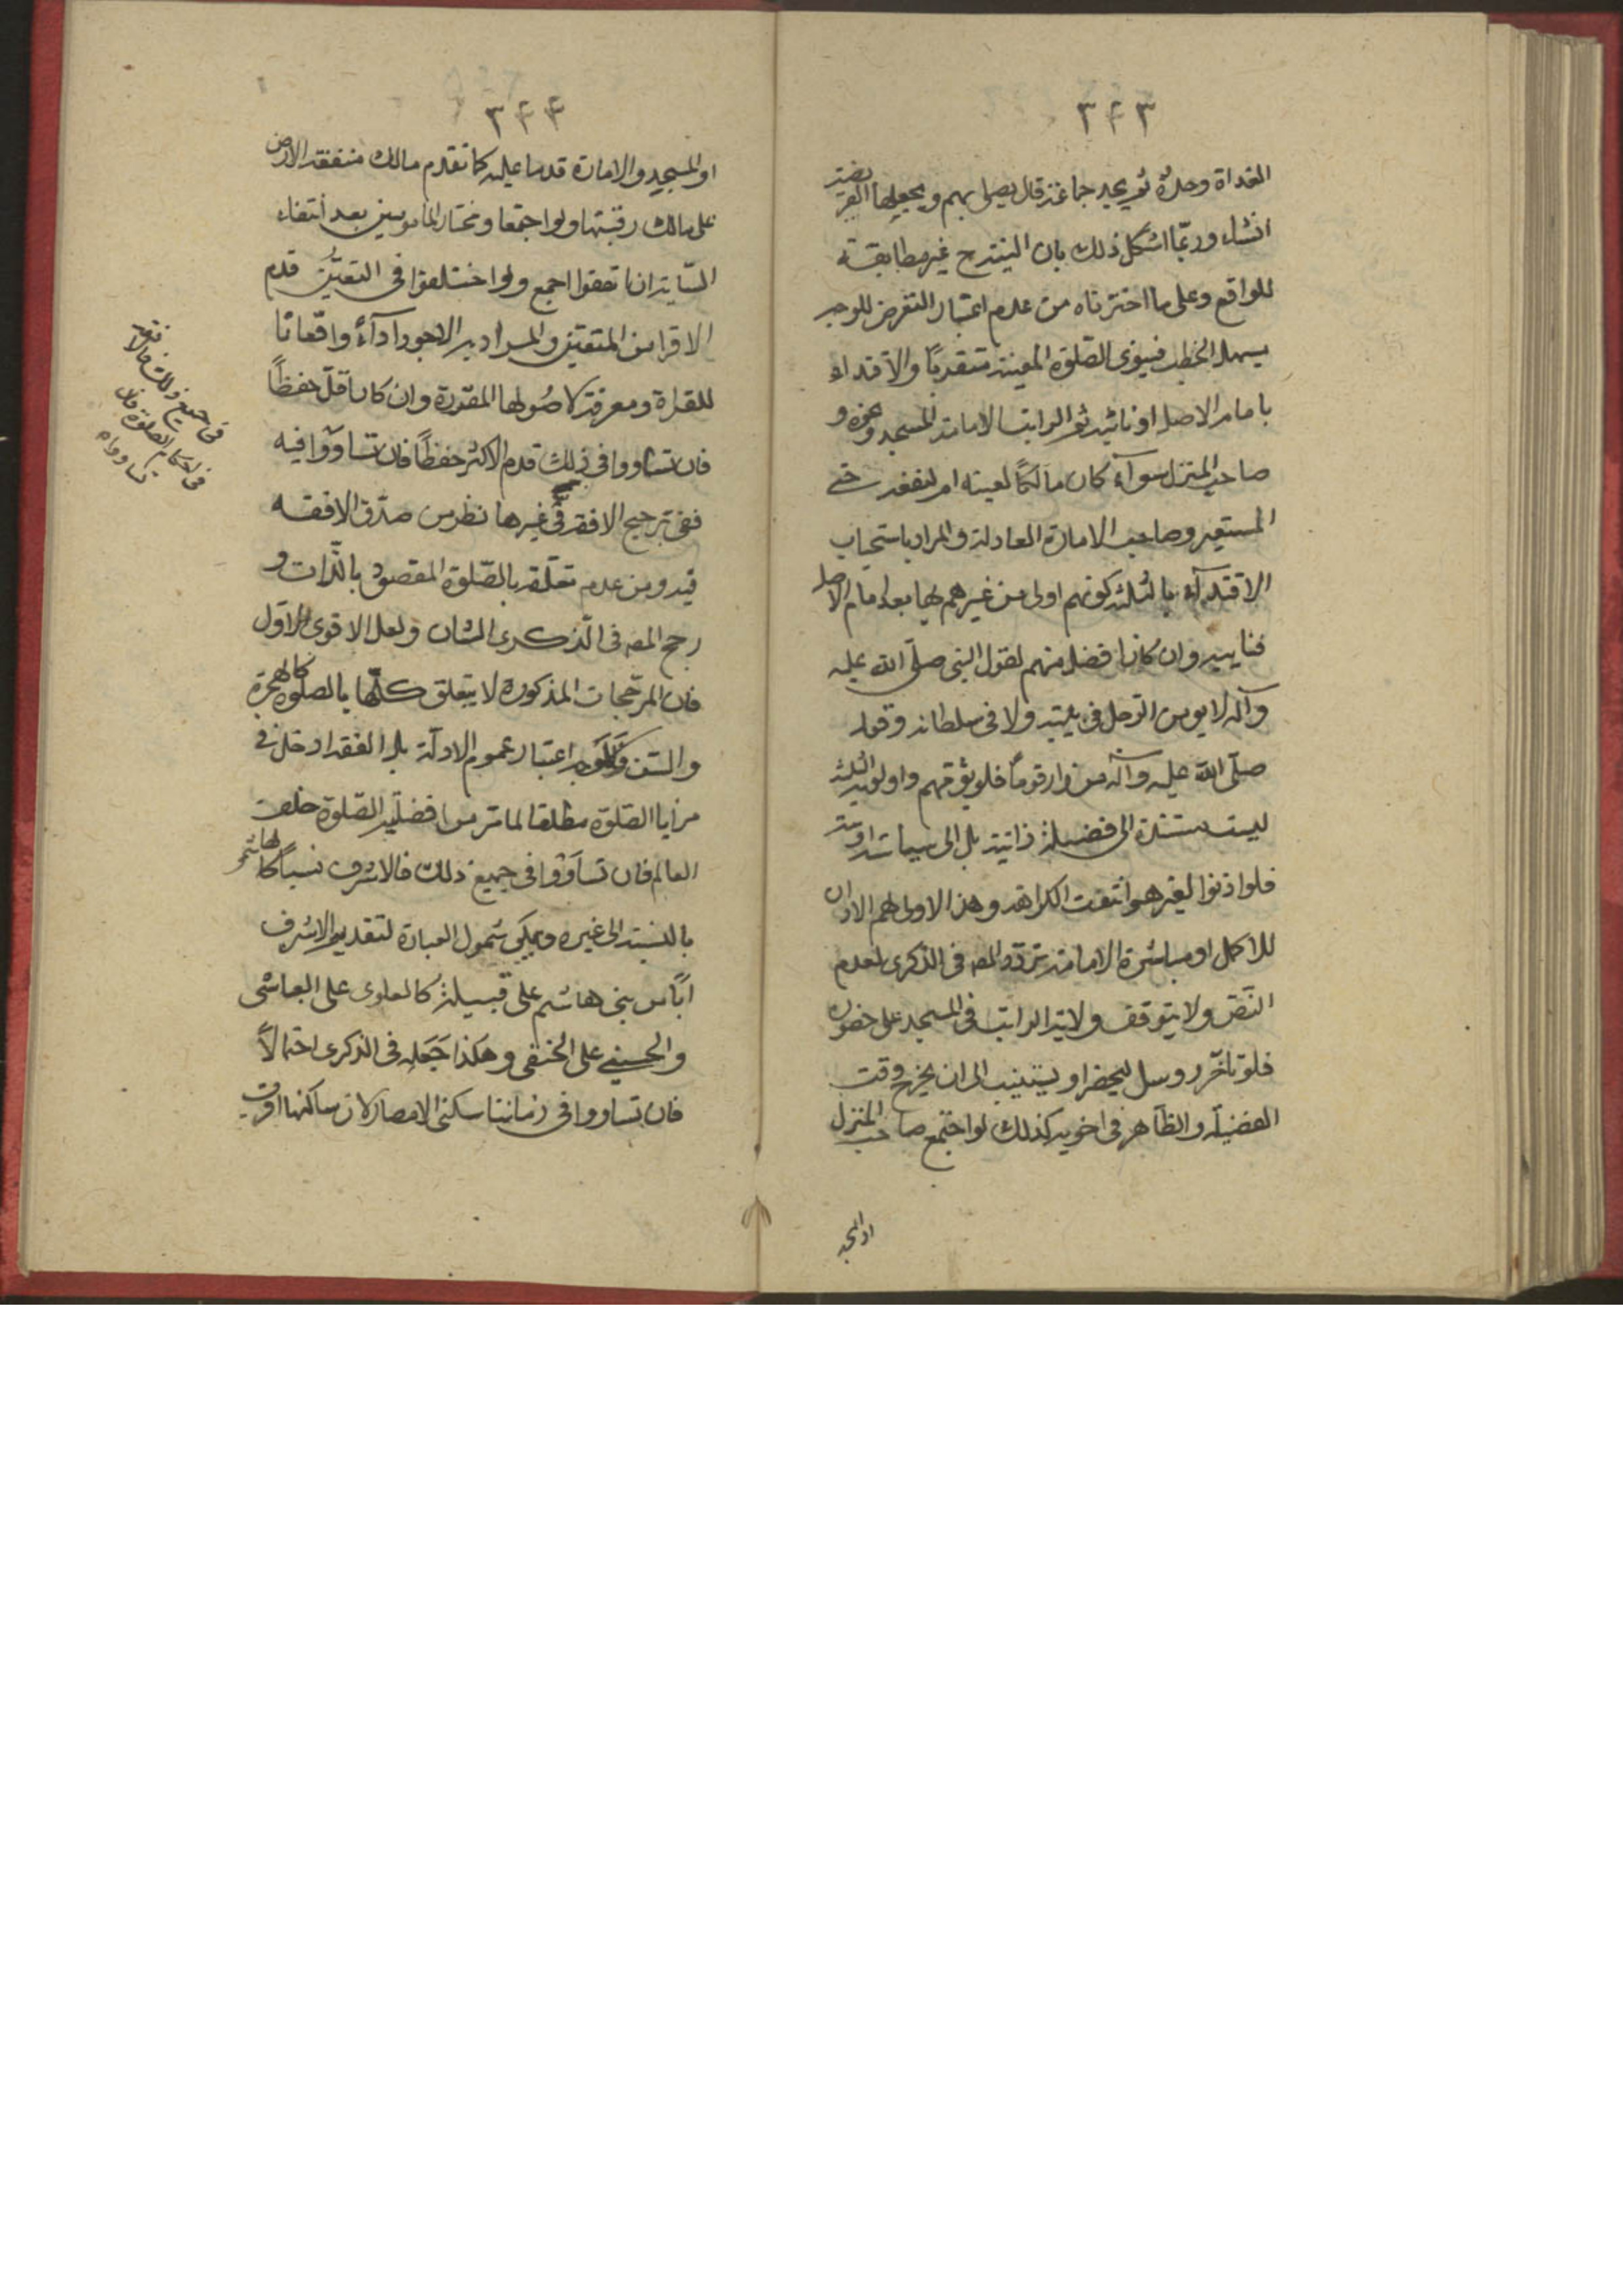 ٣٤٣
الغداة وحده ثم يجد جماعة قال يصلى بهم ويجعلها الفريضة
انشاء وربما اشكل ذلك بان النية ح غير مطابقة
للواقع وعلى ما اخترناه من عدم اعتبار التعرض للوجه
يسهل الخطب فينوى الصلوة المعينة متقدما والاقتداء
بامام الاصل او نائبه ثم الراتب لامامة المسجد ونحوه و
صاحب المنزل سوآء كان مالكا لعينه ام لمنفعته حتى
المستعير وصاحب الامارة العادلة والمراد باستحباب
الاقتدآء بالثلثة كونهم اولى من غيرهم بها بعد امام الاصل
فنايبه وان كانوا افضل منهم لقول النبى صلى الله عليه
وآله لا يومن الرجل فى بيته ولا فى سلطانه وقوله
صلى الله عليه وآله من زار قوما فلا يؤمهم واولوية الثلثة
ليست مستندة الى فضيلة ذاتية بل الى سياسة ادبية
فلو اذنوا لغيرهم انتفت الكراهة وهل الاولى لهم الاذن
للاكمل او مباشرة الامامة تردد المصه فى الذكرى لعدم
النص ولا يتوقف ولاية الراتب فى المسجد على حضوره
فلو تاخر روسل ليحضر او يستنيب الى ان يخرج وقت
الفضيلة والظاهر فى اخويه كذلك لو اجتمع صاحب المنزل
او المسجد
٣٤٤
او المسجد والامارة قدما عليه كما تقدم مالك منفعة الارض
على مالك رقبتها ولو اجتمعا ومختار المامومين بعد انتفاء
السابقة ان اتفقوا اجمع ولو اختلفوا فى التعين قدم
الاقرا من المتقين والمراد به الاجود آدآء واتقانا
للقراة ومعرفة لاصولها المقررة وان كان اقل حفظا
فان تساووا فى ذلك قدم الاكثر حفظا فان تساووا فيه
ففى ترجيح الافقه فى غيرها نظر من صدق الافقه
فيه ومن عدم تعلقه بالصلوة المقصود بالذات و
رجح المصه فى الذكرى الثان ولعل الاقوى الاول
فان المرجحات المذكورة لا يتعلق كلها بالصلوة كالهجرة
والسن ولوجه اعتبار عموم الادلة بل الفقه ادخل فى
مزايا الصلوة مطلقا لما مر من افضلية الصلوة خلف
العالم فان تساووا فى جميع ذلك فالاشرف نسبا كالهاشمى
بالنسبة الى غيره ويمكن شمول العبارة لتقديم الاشرف
ابا من بنى هاشم على قبيلة كالعلوى على العباسى
والحسينى على الحنفى وهكذا جعله فى الذكرى احتمالا
فان تساووا فى زماننا سكنى الامصار لان ساكنها اقرب
فى جميع ذلك فالافقه
فى احكام الصلوة فان
تساوواه